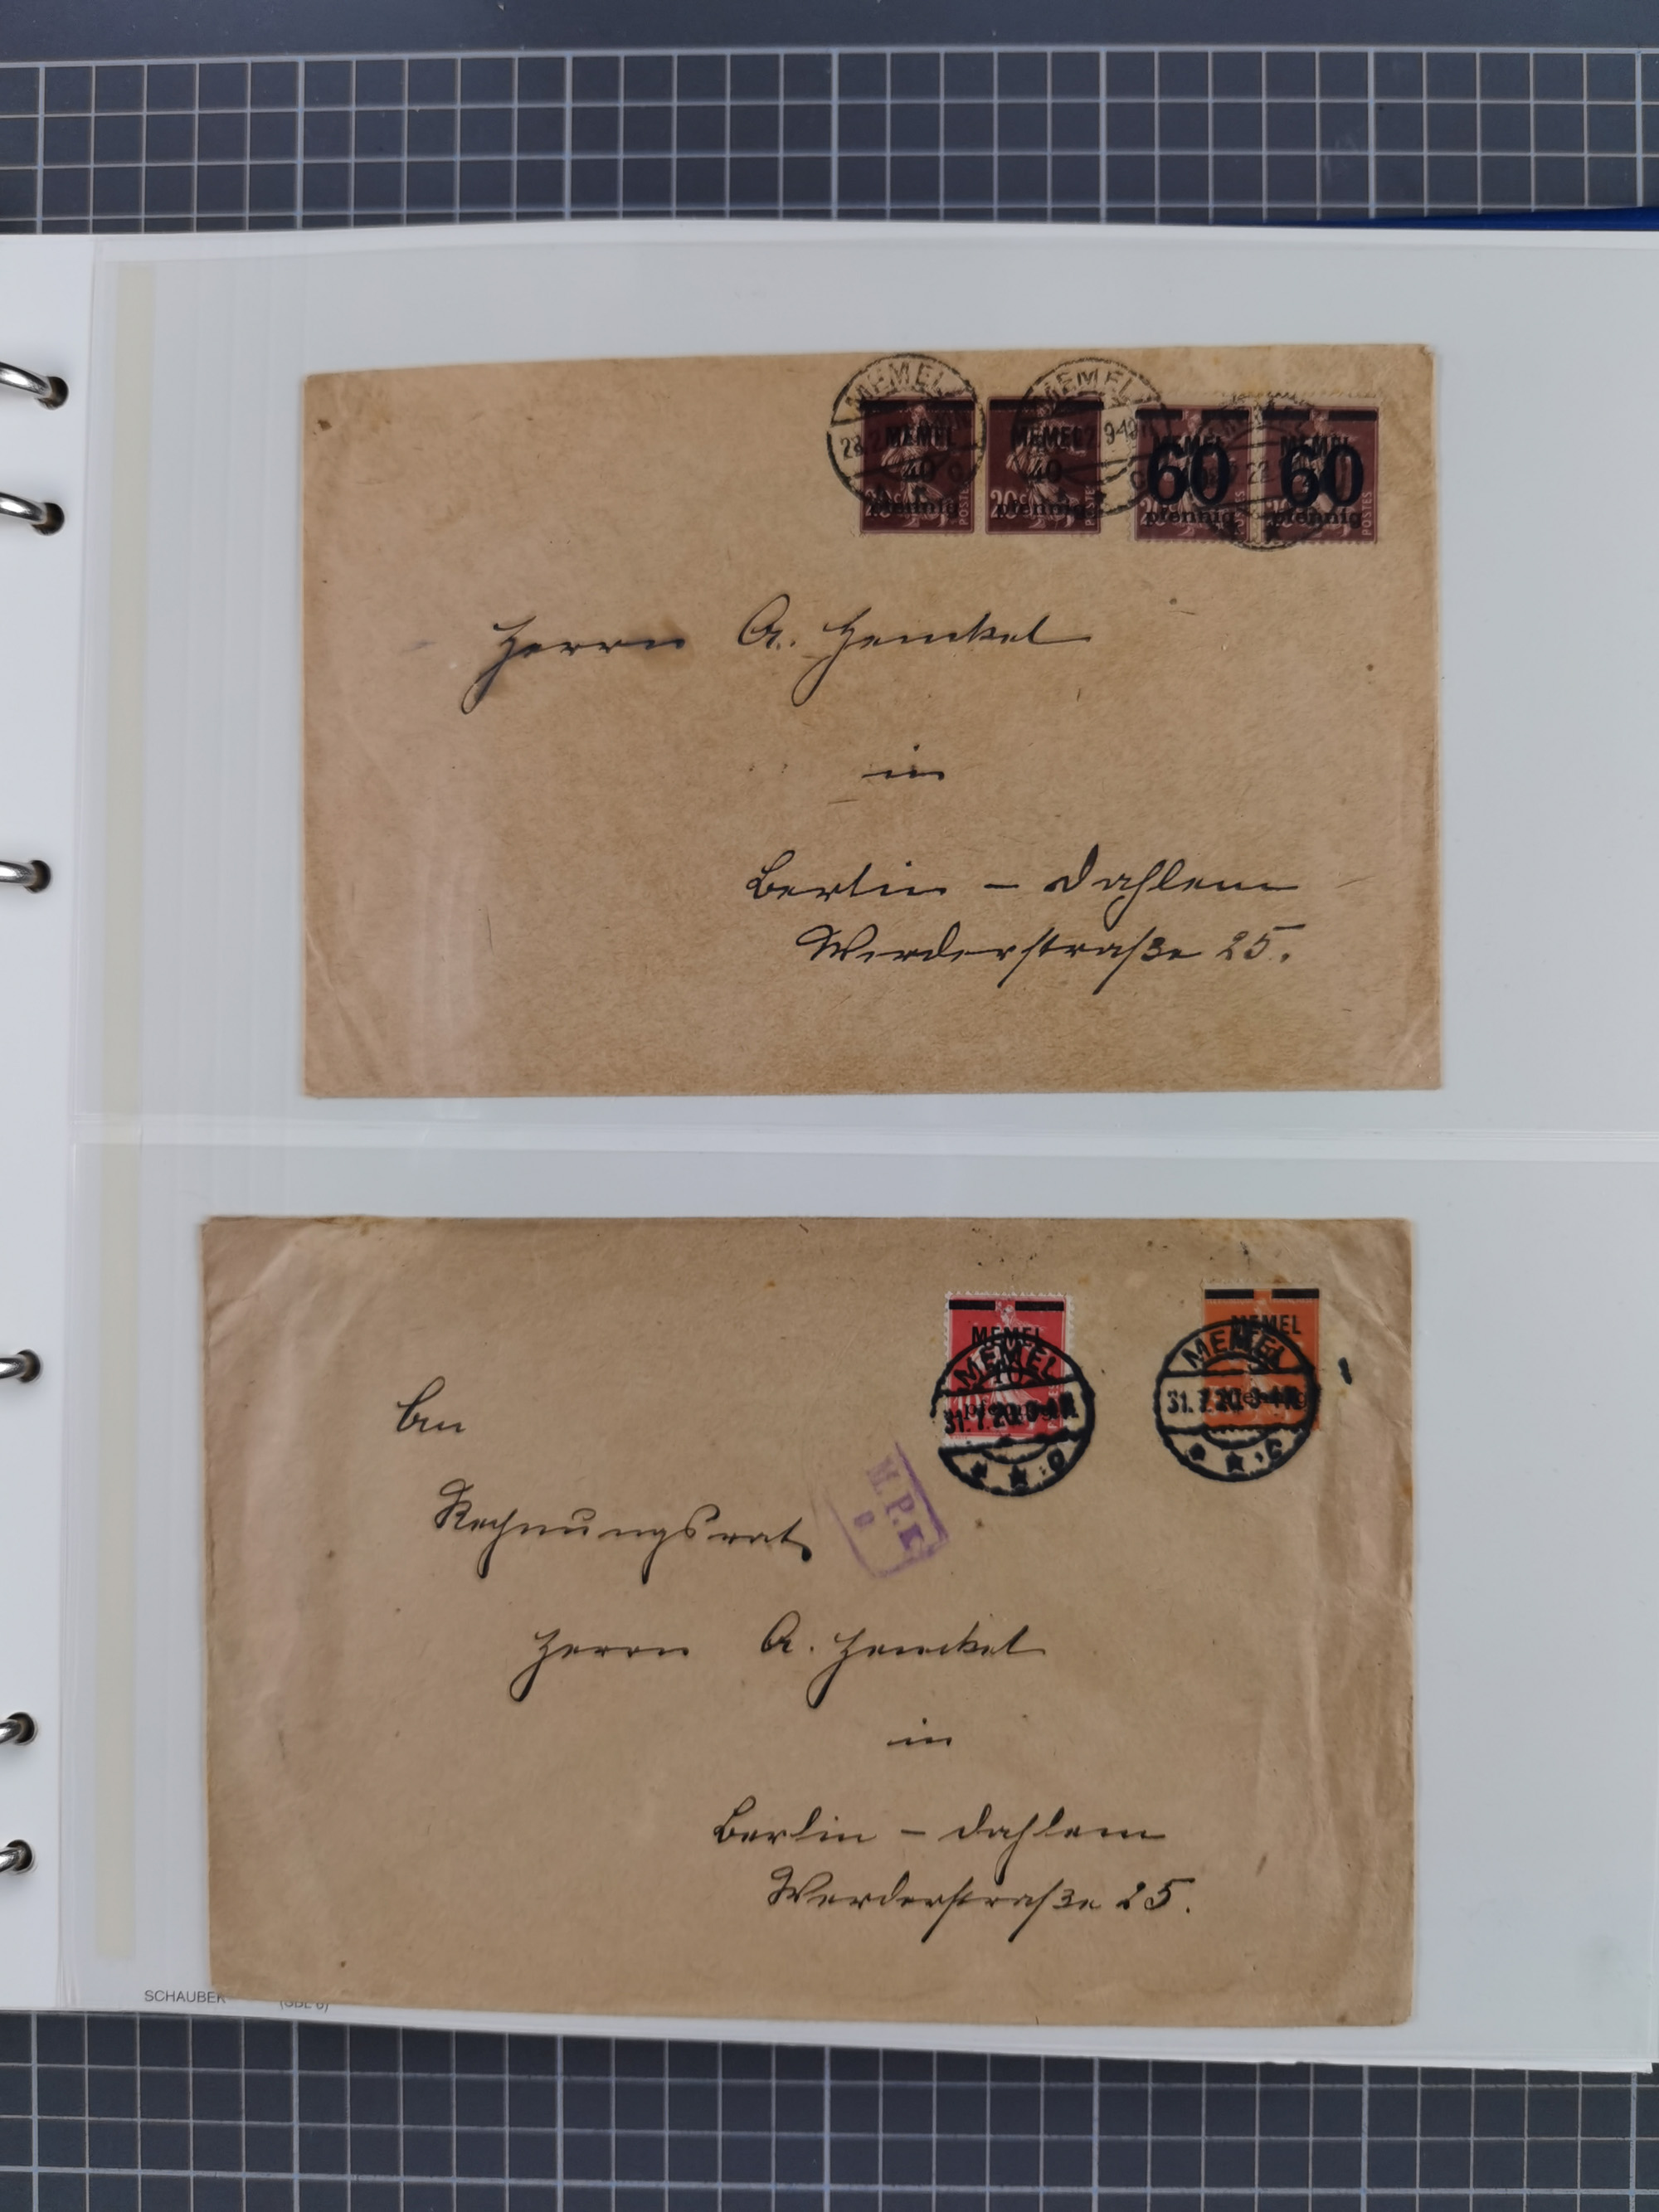 MEMEL
MEMEL
MEMEL
40
20c
Pfennig
POSTES
MEMEL
40
20c
Pfennig
POSTES
MEMEL
60
Pfennig
MEMEL
60
Pfennig
POSTES
Herrn A. Henckel
in
Berlin – Dahlem
Werderstraße 25.
MEMEL
MEMEL
31.7.20
MEMEL
MEMEL
31.7.20
Pfennig
An
Rechnungsrat
M.P.K
Herrn A. Henckel
in
Berlin – Dahlem
Werderstraße 25.
SCHAUBEK